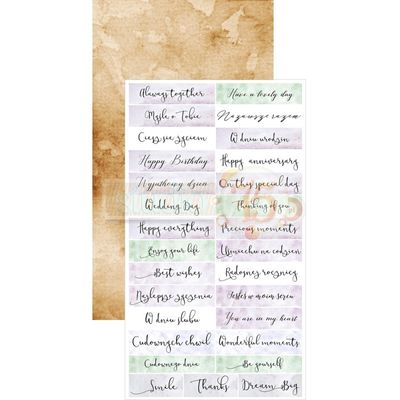 Always together
Have a lovely day
Myślę o Tobie
Na zawsze razem
Ciesz się życiem
W dniu urodzin
Happy Birthday
Happy anniversary
Wyjątkowy dzień
On this special day
Wedding Day
Thinking of you
Happy everything
Precious moments
Enjoy your life
Uśmiechu na codzień
Best wishes
Radosnej rocznicy
Najlepsze życzenia
Jesteś w moim sercu
W dniu ślubu
You are in my heart
Cudownych chwil
Wonderful moments
Cudownego dnia
Be yourself
Smile
Thanks
Dream Big